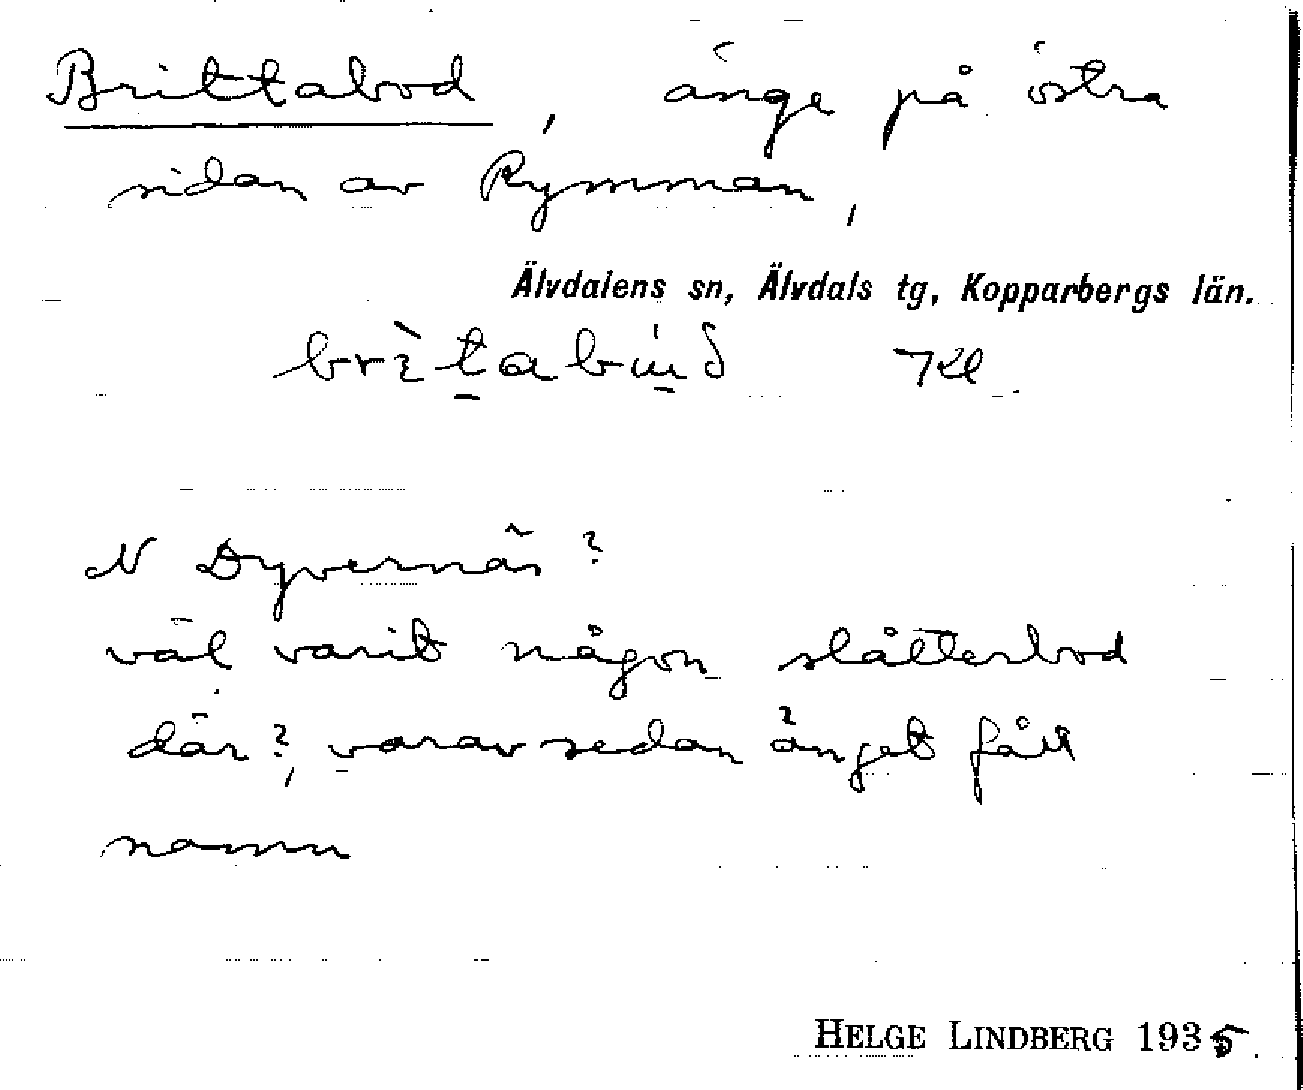 Brittabod, änge på östra
sidan av Rymman,
Älvdalens sn, Älvdals tg, Kopparbergs län.
N Dyvernäs?
väl varit någon slåtterbod
där?, varav sedan änget fått
namn
HELGE LINDBERG 1935.